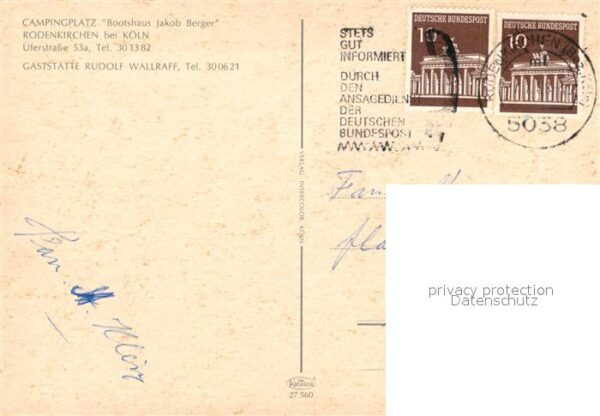 CAMPINGPLATZ "Bootshaus Jakob Berger"
RODENKIRCHEN bei KÖLN
Uferstraße 53a, Tel. 301382
GASTSTÄTTE RUDOLF WALLRAFF, Tel. 300621
STETS
GUT
INFORMIERT
DURCH
DEN
ANSAGEDIENST
DER
DEUTSCHEN
BUNDESPOST
DEUTSCHE BUNDESPOST
10
DEUTSCHE BUNDESPOST
10
RODENKIRCHEN
5038
VERLAG INTERCOLOR, KÖLN
Fam.
privacy protection
Datenschutz
Krüger
27.560